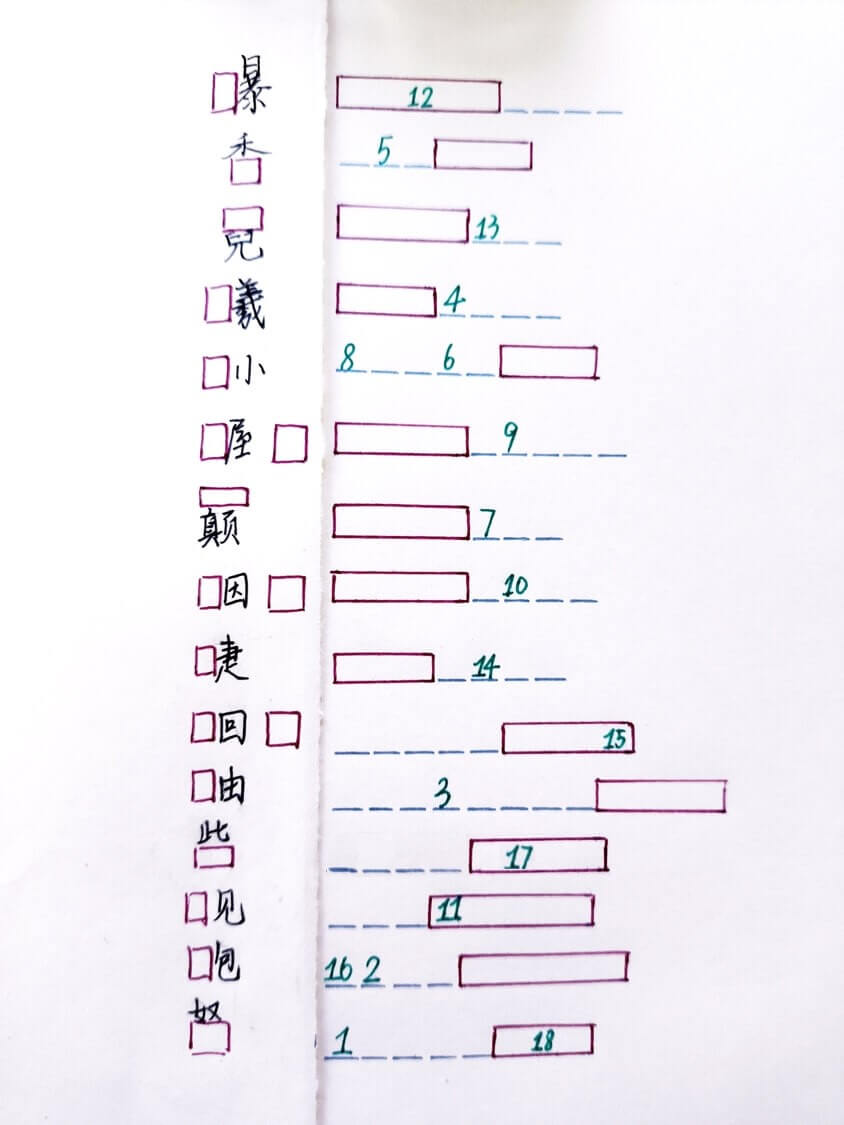 □暴 12
禾□ 5
□兒 13
□羲 4
□小 8 6
□屋□ 9
□颠 7
□因□ 10
□疌 14
□回□ 15
□由 3
此□ 17
□见 11
□包 16 2
奴□ 1 18